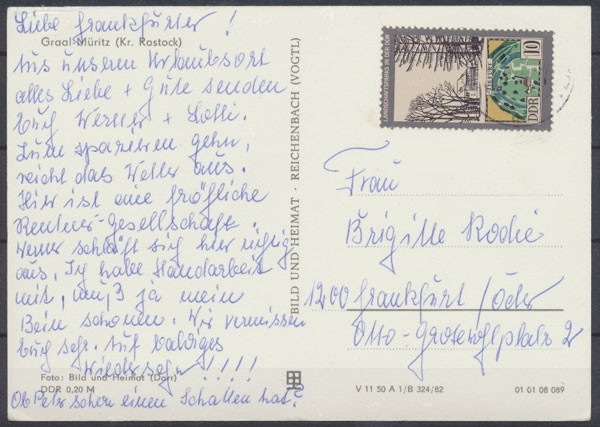 Liebe Frankfurter!
Graal-Müritz (Kr. Rostock)
Aus unserem Urlaubsort
alles Liebe + Gute senden
Euch Werner + Lotti.
Zum spazieren gehn,
reicht das Wetter aus.
Hier ist eine fröhliche
Rentner-Gesellschaft.
Werner schläft sich hier richtig
aus, Ich habe Handarbeit
mit, muß ja mein
Bein schonen. Wir vermissen
Euch sehr. Auf baldiges
Wiedersehn!!!!
Foto: Bild und Heimat (Darr)
DDR 0,20 M
Ob Petr schon einen Schatten hat?
BILD UND HEIMAT · REICHENBACH (VOGTL)
LANDSCHAFTSPARKS IN DER DDR
10
DDR
Frau
Brigitte Rodie
1200 Frankfurt/Oder
Otto-Grotewohlplatz 2
V 11 50 A 1/B 324/82
01 01 08 089